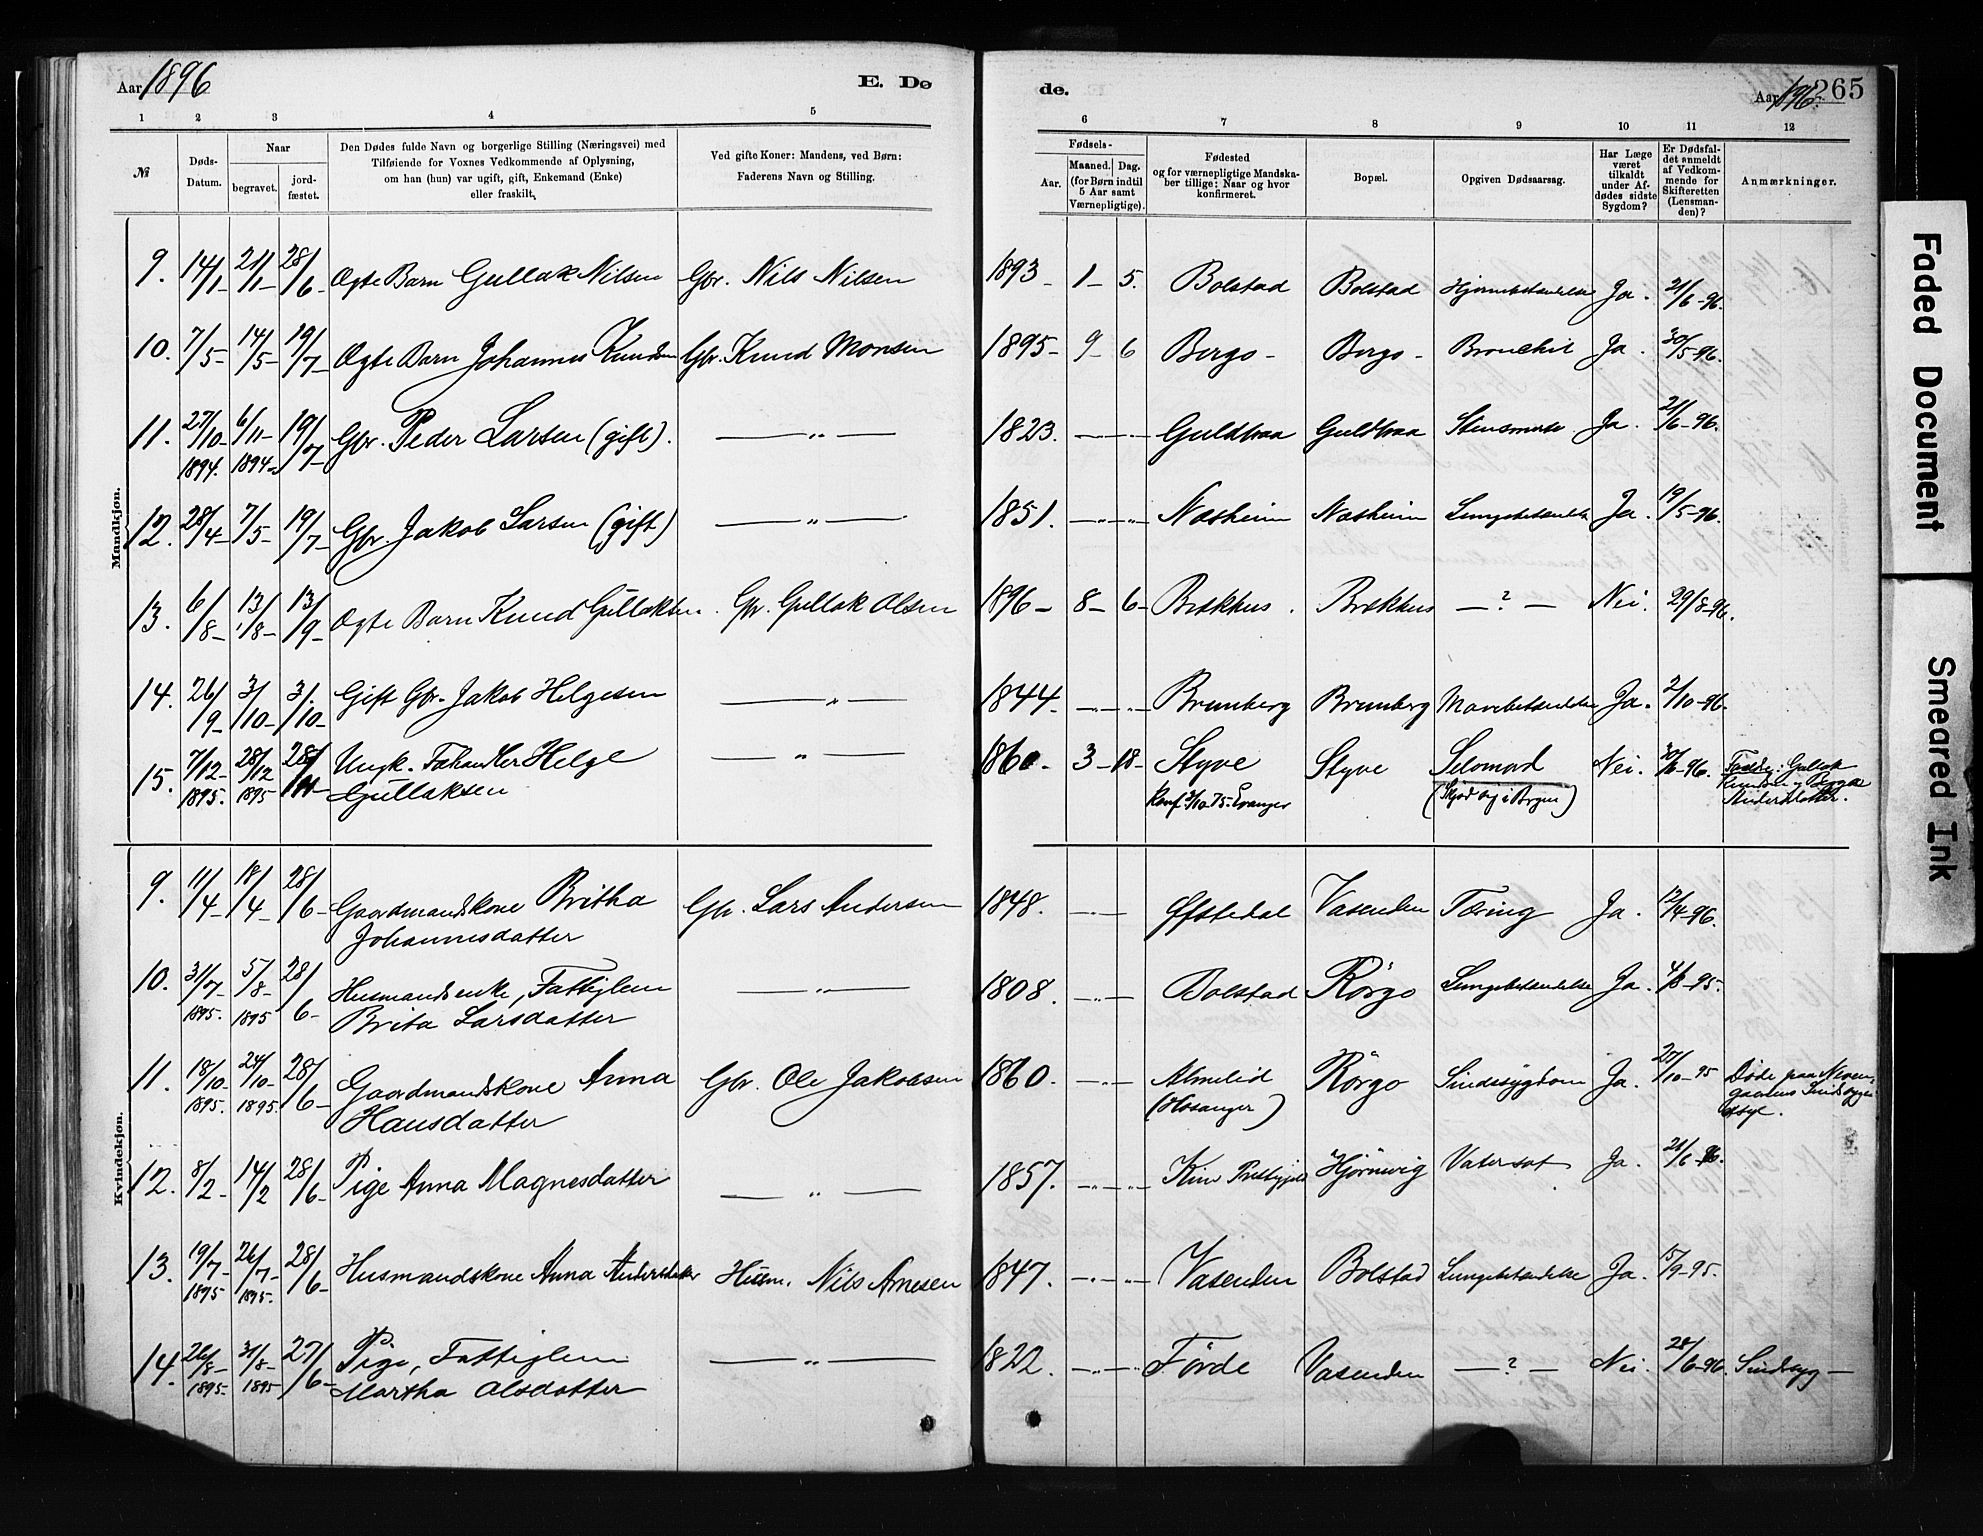 Aar 1896
E. Dø
de.
Aar 1896. 265
1 2 3 4 5
6 7 8 9 10 11 12
№
Døds-Datum.
Naar
begravet.
jordfæstet.
Den Dødes fulde Navn og borgerlige Stilling (Næringsvei) med
Tilføiende for Voxnes Vedkommende af Oplysning,
om han (hun) var ugift, gift, Enkemand (Enke)
eller fraskilt.
Ved gifte Koner: Mandens, ved Børn:
Faderens Navn og Stilling.
Fødsels-
Aar.
Maaned. Dag.
(for Børn indtil
5 Aar samt
Værnepligtige).
Fødested
og for værnepligtige Mandska-
ber tillige: Naar og hvor
konfirmeret.
Bopæl.
Opgiven Dødsaarsag.
Har Læge
været
tilkaldt
under Af-
dødes sidste
Sygdom?
Er Dødsfal-
det anmeldt
af Vedkom-
mende for
Skifteretten
(Lensman-
den)?
Anmærkninger.
Mandkjøn.
9. 14/1- 21/1- 28/6- Ægte Barn Gullak Nilsen Gbr. Nils Nilsen 1893 - 1 - 5. Bolstad Bolstad Hjernebetændelse Ja. 21/6-96.
10. 7/5- 14/5- 19/7- Ægte Barn Johannes Knudsen Gbr. Knud Monsen 1895- 9- 6 Bergo- Bergo- Bronchit Ja. 30/5-96.
11. 27/10- 1894. 6/11- 1894- 19/7- Gbr. Peder Larsen (gift). — „ — 1823. Guldbraa Guldbraa Ja. 21/6-96.
12. 28/4- 7/5- 19/7- Gbr. Jakob Larsen (gift) — „ — 1851. Næsheim Næsheim Lungebetændelse Ja. 19/5-96.
13. 6/8- 13/8- 13/9- Ægte Barn Knud Gullaksen. Gbr. Gullak Olsen 1896- 8- 6- Brækhus. Brækhus — ? — Nei. 29/8-96.
14. 26/9- 3/10- 3/10- Gift Gbr. Jakob Helgesen — „ — 1844- Brunberg Brunberg Mavebetændelse Ja. 2/10-96.
15. 7/12- 1895. 28/12 1895 Ungk. Fæhandler Helge — „ — 1860. 3- 18- Styve Styve Selvmord Nei. 30/6-96. Gullak
Gullaksen Konf. 3/10 75- Evanger (Skjød sig i Brynet) Knudsen Andersdatter.
Kvindekjøn.
9. 11/4- 18/4- 28/6- Gaardmandskone Britha Gbr. Lars Andersen 1848. Øfstedal Vasenden Tæring Ja. 12/4-96.
Johannesdatter
10. 31/7- 1895. 5/8- 1895 28/6- Husmandsenke, Fattiglem — „ — 1808. Bolstad Rörgo Lungebetændelse Ja. 4/8-95.
Brita Larsdatter
11. 18/10- 1895. 24/10- 1895. 28/6- Gaardmandskone Anna Gbr. Ole Jakobsen 1860. Almelid Rörgo Sindssygdom Ja. 27/10-95 Døde paa Neven-
Hansdatter (Hosanger) gaardens Sindssyge-
asyl.
12. 8/2- 14/2 28/6- Pige Anna Magnesdatter — „ — 1857. Hjörnevig Vatersot Ja. 21/6-96.
13. 19/7- 1895 26/7- 1895. 28/6- Husmandskone Anna Andersdatter Husm. Nils Arnesen 1847. Vasenden Bolstad Lungebetændelse Ja. 15/9-95.
14. 26/8- 1895- 31/8- 1895 27/6- Pige, Fattiglem — „ — 1822. Förde Vasenden — ? — Nei. 28/6-96. Sindssyg —
Martha Olsdatter
Faded Document
Smeared Ink